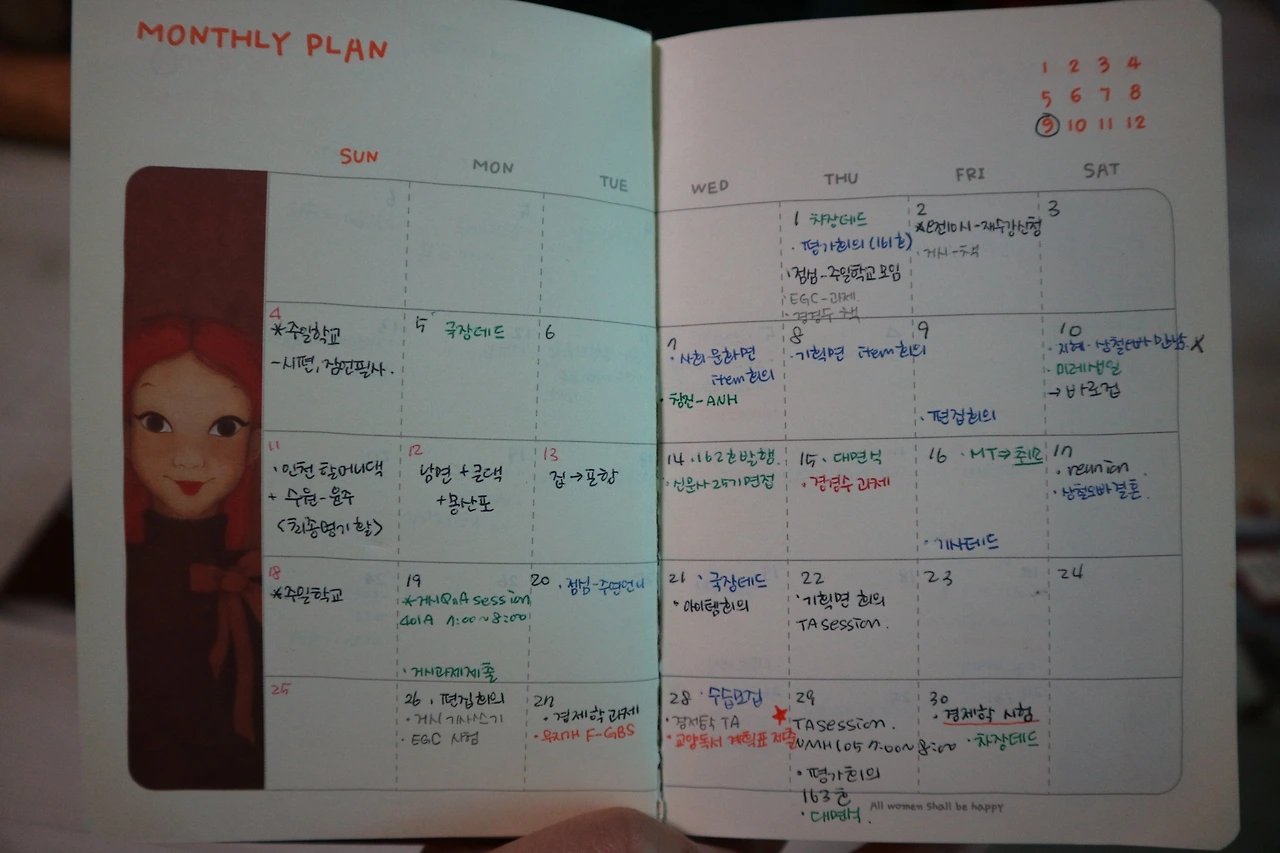 MONTHLY PLAN
1 2 3 4
5 6 7 8
9 10 11 12
SUN MON TUE WED THU FRI SAT
1 차장데드
· 평가회의 (161호)
· 점심-주일학교모임
EGC-과제
· 경경수 책
2
*오전10시-재수강신청
· 거시-책
3
4
*주일학교
-시편, 잠언필사.
5 국장데드
6
7
· 사회문화면
item회의
· 창진-ANH
8
· 기획면 item회의
9
· 편집회의
10
· 지혜·상철오빠 만남. X
· 미레생일
→ 바로접
11
· 인천 할머니댁
+ 수원-윤주
<최종병기 활>
12
남면 + 큰댁
+ 몽산포
13
집 → 포항
14 · 162호발행.
· 신문사25기면접
15 · 대면식
· 경영수 과제
16 · MT⇒취소
· 기사데드
17
· reunion
· 상철오빠결혼.
18
*주일학교
19
*거시QnA session
401A 7:00~8:00
· 거시과제제출
20 · 점심-수연언니
21 · 국장데드
· 아이템회의
22
· 기획면 회의
TA session.
23
24
25
26 · 편집회의
· 거시 기사쓰기
· EGC 시험
27
· 경제학과제
F-GBS
28 · 수습모집
· 경제학 TA
· 교양독서 계획표 제출
29
TA session.
UMH105 7:00~8:00
· 평가회의
163호
· 대면식.
30
· 경제학 시험
· 차장데드
All women shall be happy